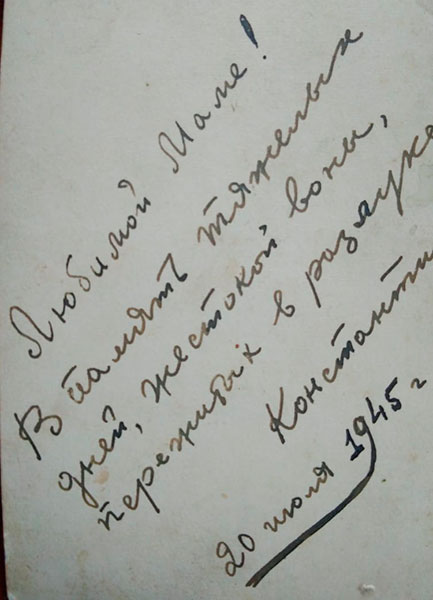 Любимой Маме!
В память тяжелых
дней, жестокой воны,
пережитых в разлуке
Константи
20 июля 1945 г